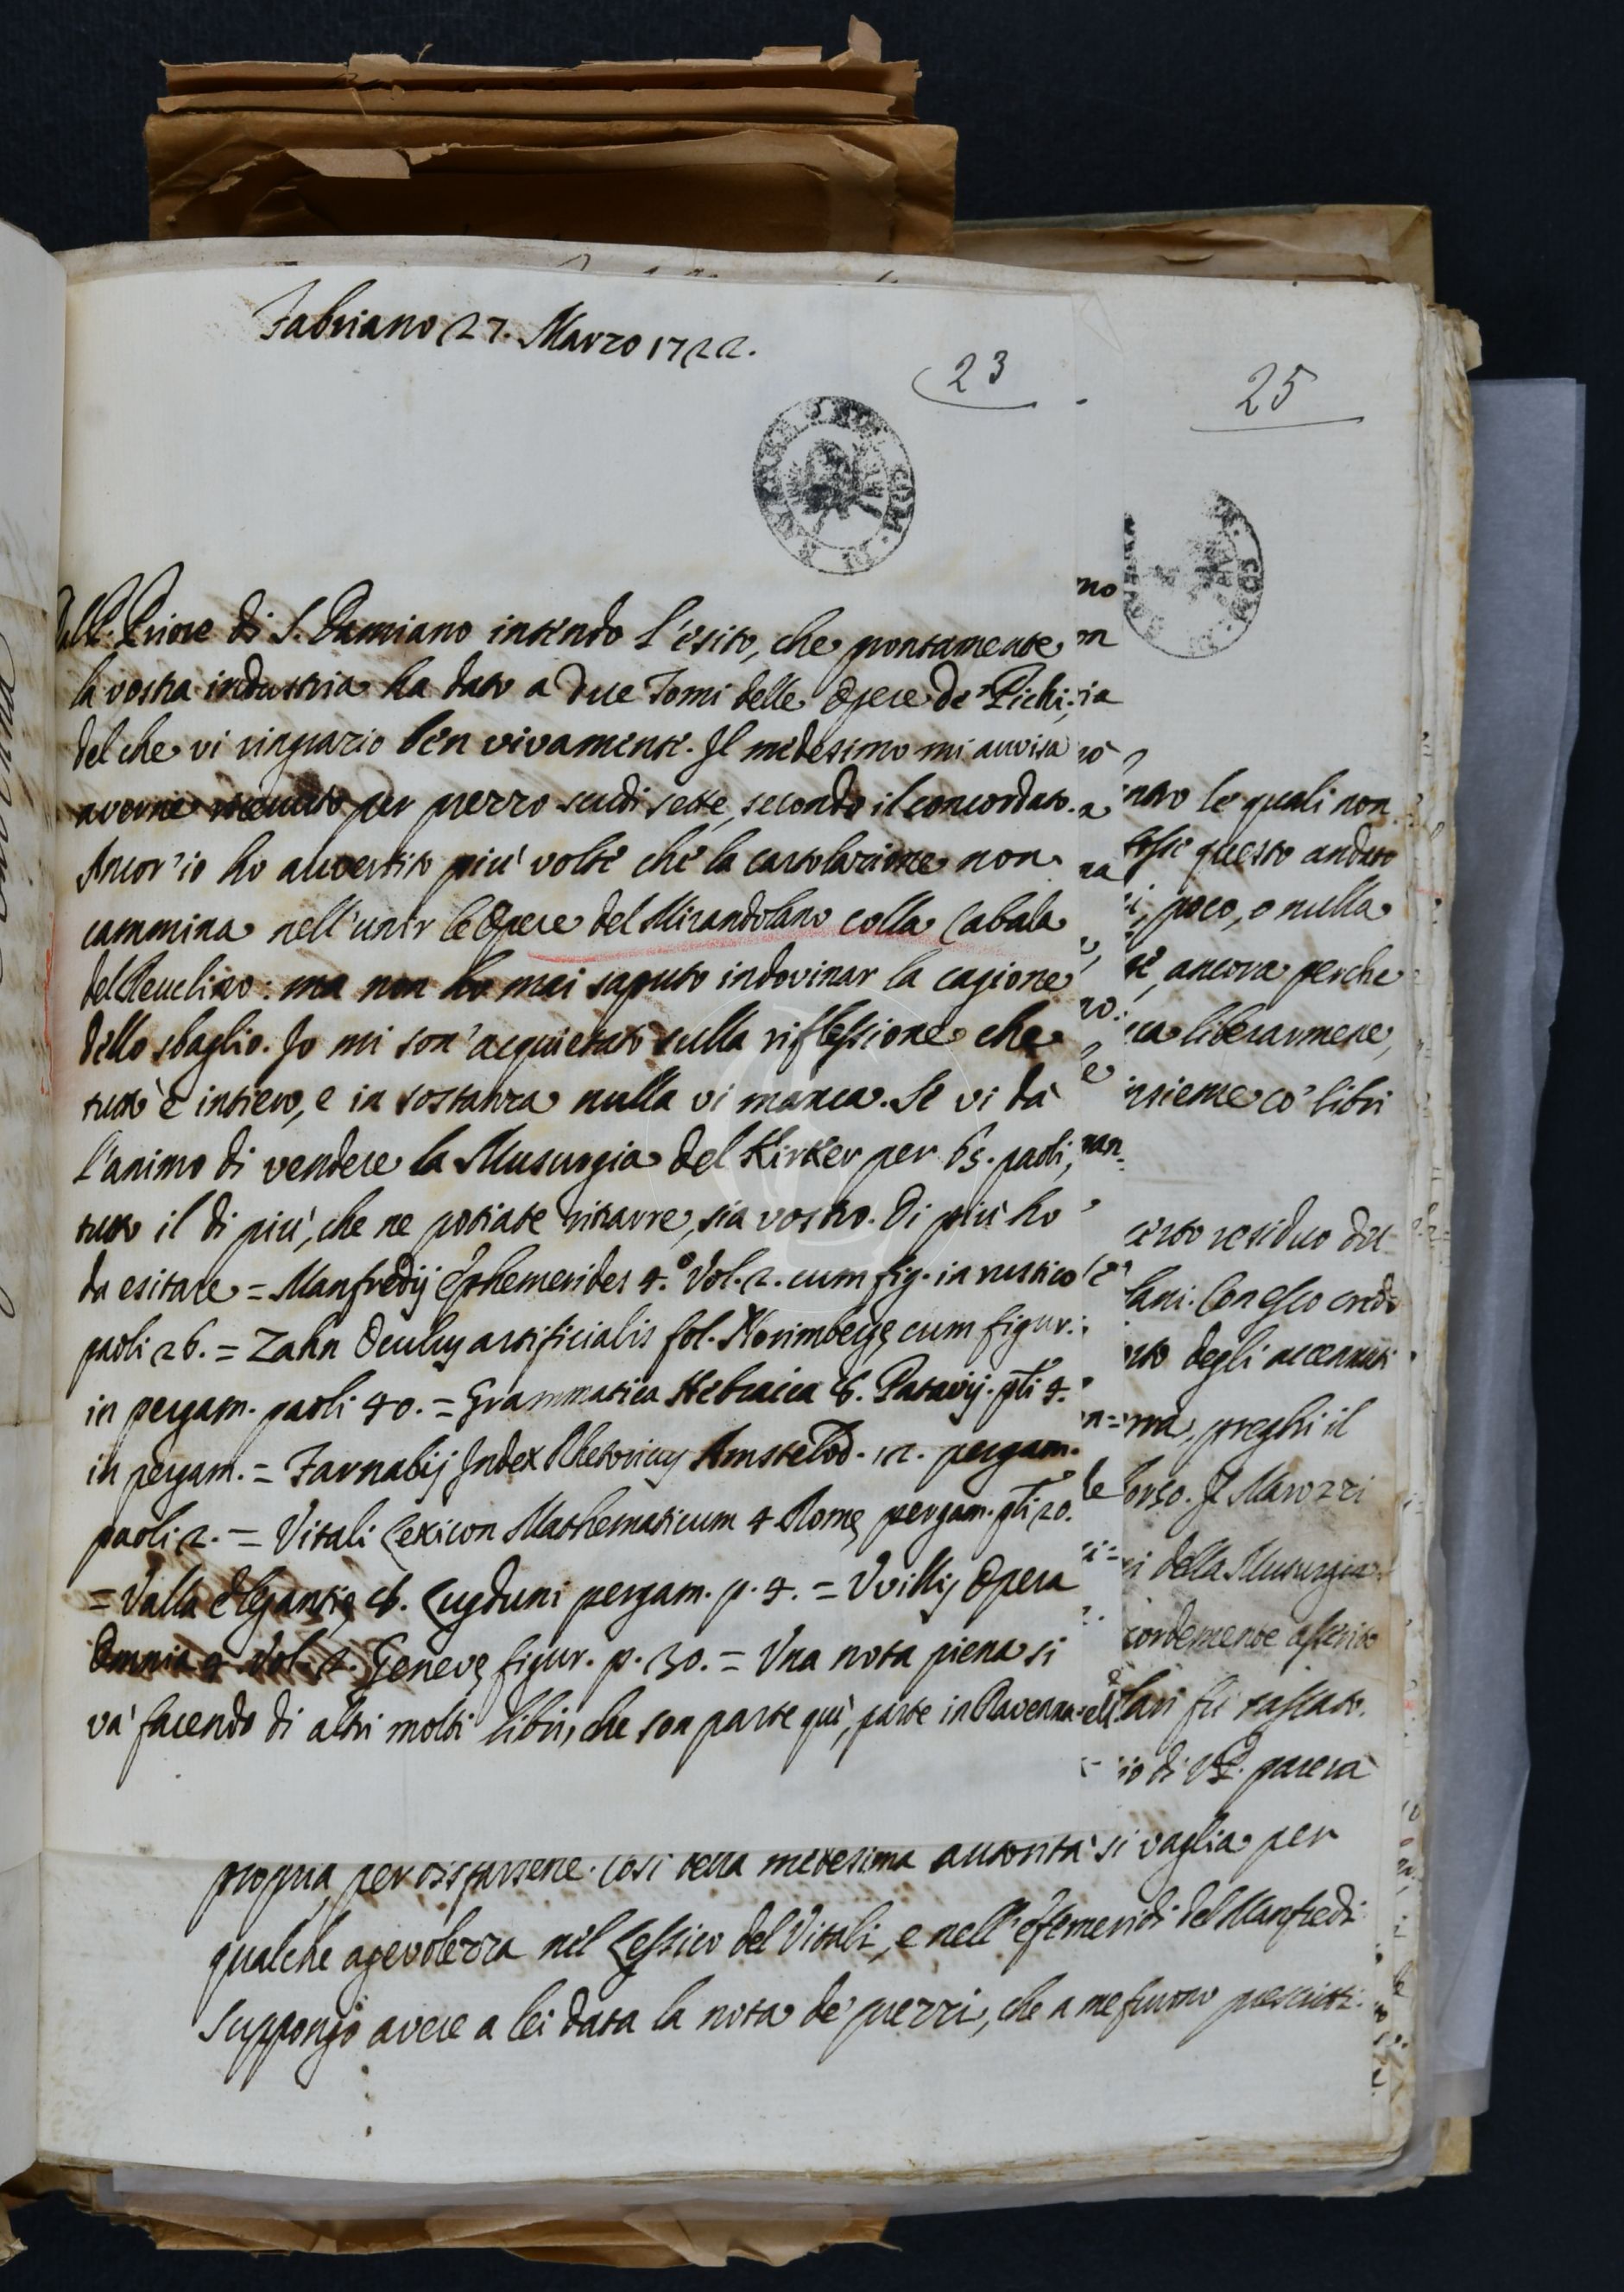 Fabriano 27. Marzo 1722.
23
25
Dal P. Priore di S. Damiano intendo l'esito, che prontamente
la vostra industria ha dato a due Tomi delle Opere de' Pichi;
del che vi ringrazio ben vivamente. Il medesimo mi avvisa
averne ricevuto per prezzo scudi sette, secondo il concordato.
Ancor'io ho avvertito più volte che la cartolazione non
cammina nell'unir le Opere del Mirandolano colla Cabala
del Reuclino: ma non ho mai saputo indovinar la cagione
dello sbaglio. Io mi son'acquietato sulla riflessione che
tutto è intiero, e in sostanza nulla vi manca. Se vi dà
l'animo di vendere la Musurgia del Kirker per 65. paoli,
tutto il di più, che ne potiate ritrarre, sia vostro. Di più ho
da esitare = Manfredij Ephemerides 4.º Vol. 2. cum fig. in rustico
paoli 26. = Zahn Oculus artificialis fol. Norimbergę cum figur.
in pergam. paoli 40. = Grammatica Hebraica 8. Patavij. pli 4.
in pergam. = Farnabij Index Rhetoricus Amstelod. 12. pergam.
paoli 2. = Vitali Lexicon Mathematicum 4 Romę pergam. pli 20.
= Valla Elegantię 8. Lugduni pergam. p. 4. = Vvillij Opera
Omnia 4 Vol. 2. Genevę figur. p. 30. = Una nota piena si
và facendo di altri molti libri, che son parte quì, parte in Ravenna
no
le quali non
questo andato
poco, o nulla
ancora perche
liberarmene,
insieme co' libri
certo residuo del
lani. Con esso credo
degli accennati
preghi il
orso. Il Marozzi
della Musurgia.
cordemente asserito
lari fù tassato.
io di VS. parerà
propria per disfarsene. Così della medesima autorità si vaglia per
qualche agevolezza nel Lessico del Vitali, e nell'Efemeridi del Manfredi
Suppongo avere a lei data la nota de' prezzi, che a me furono prescritti.